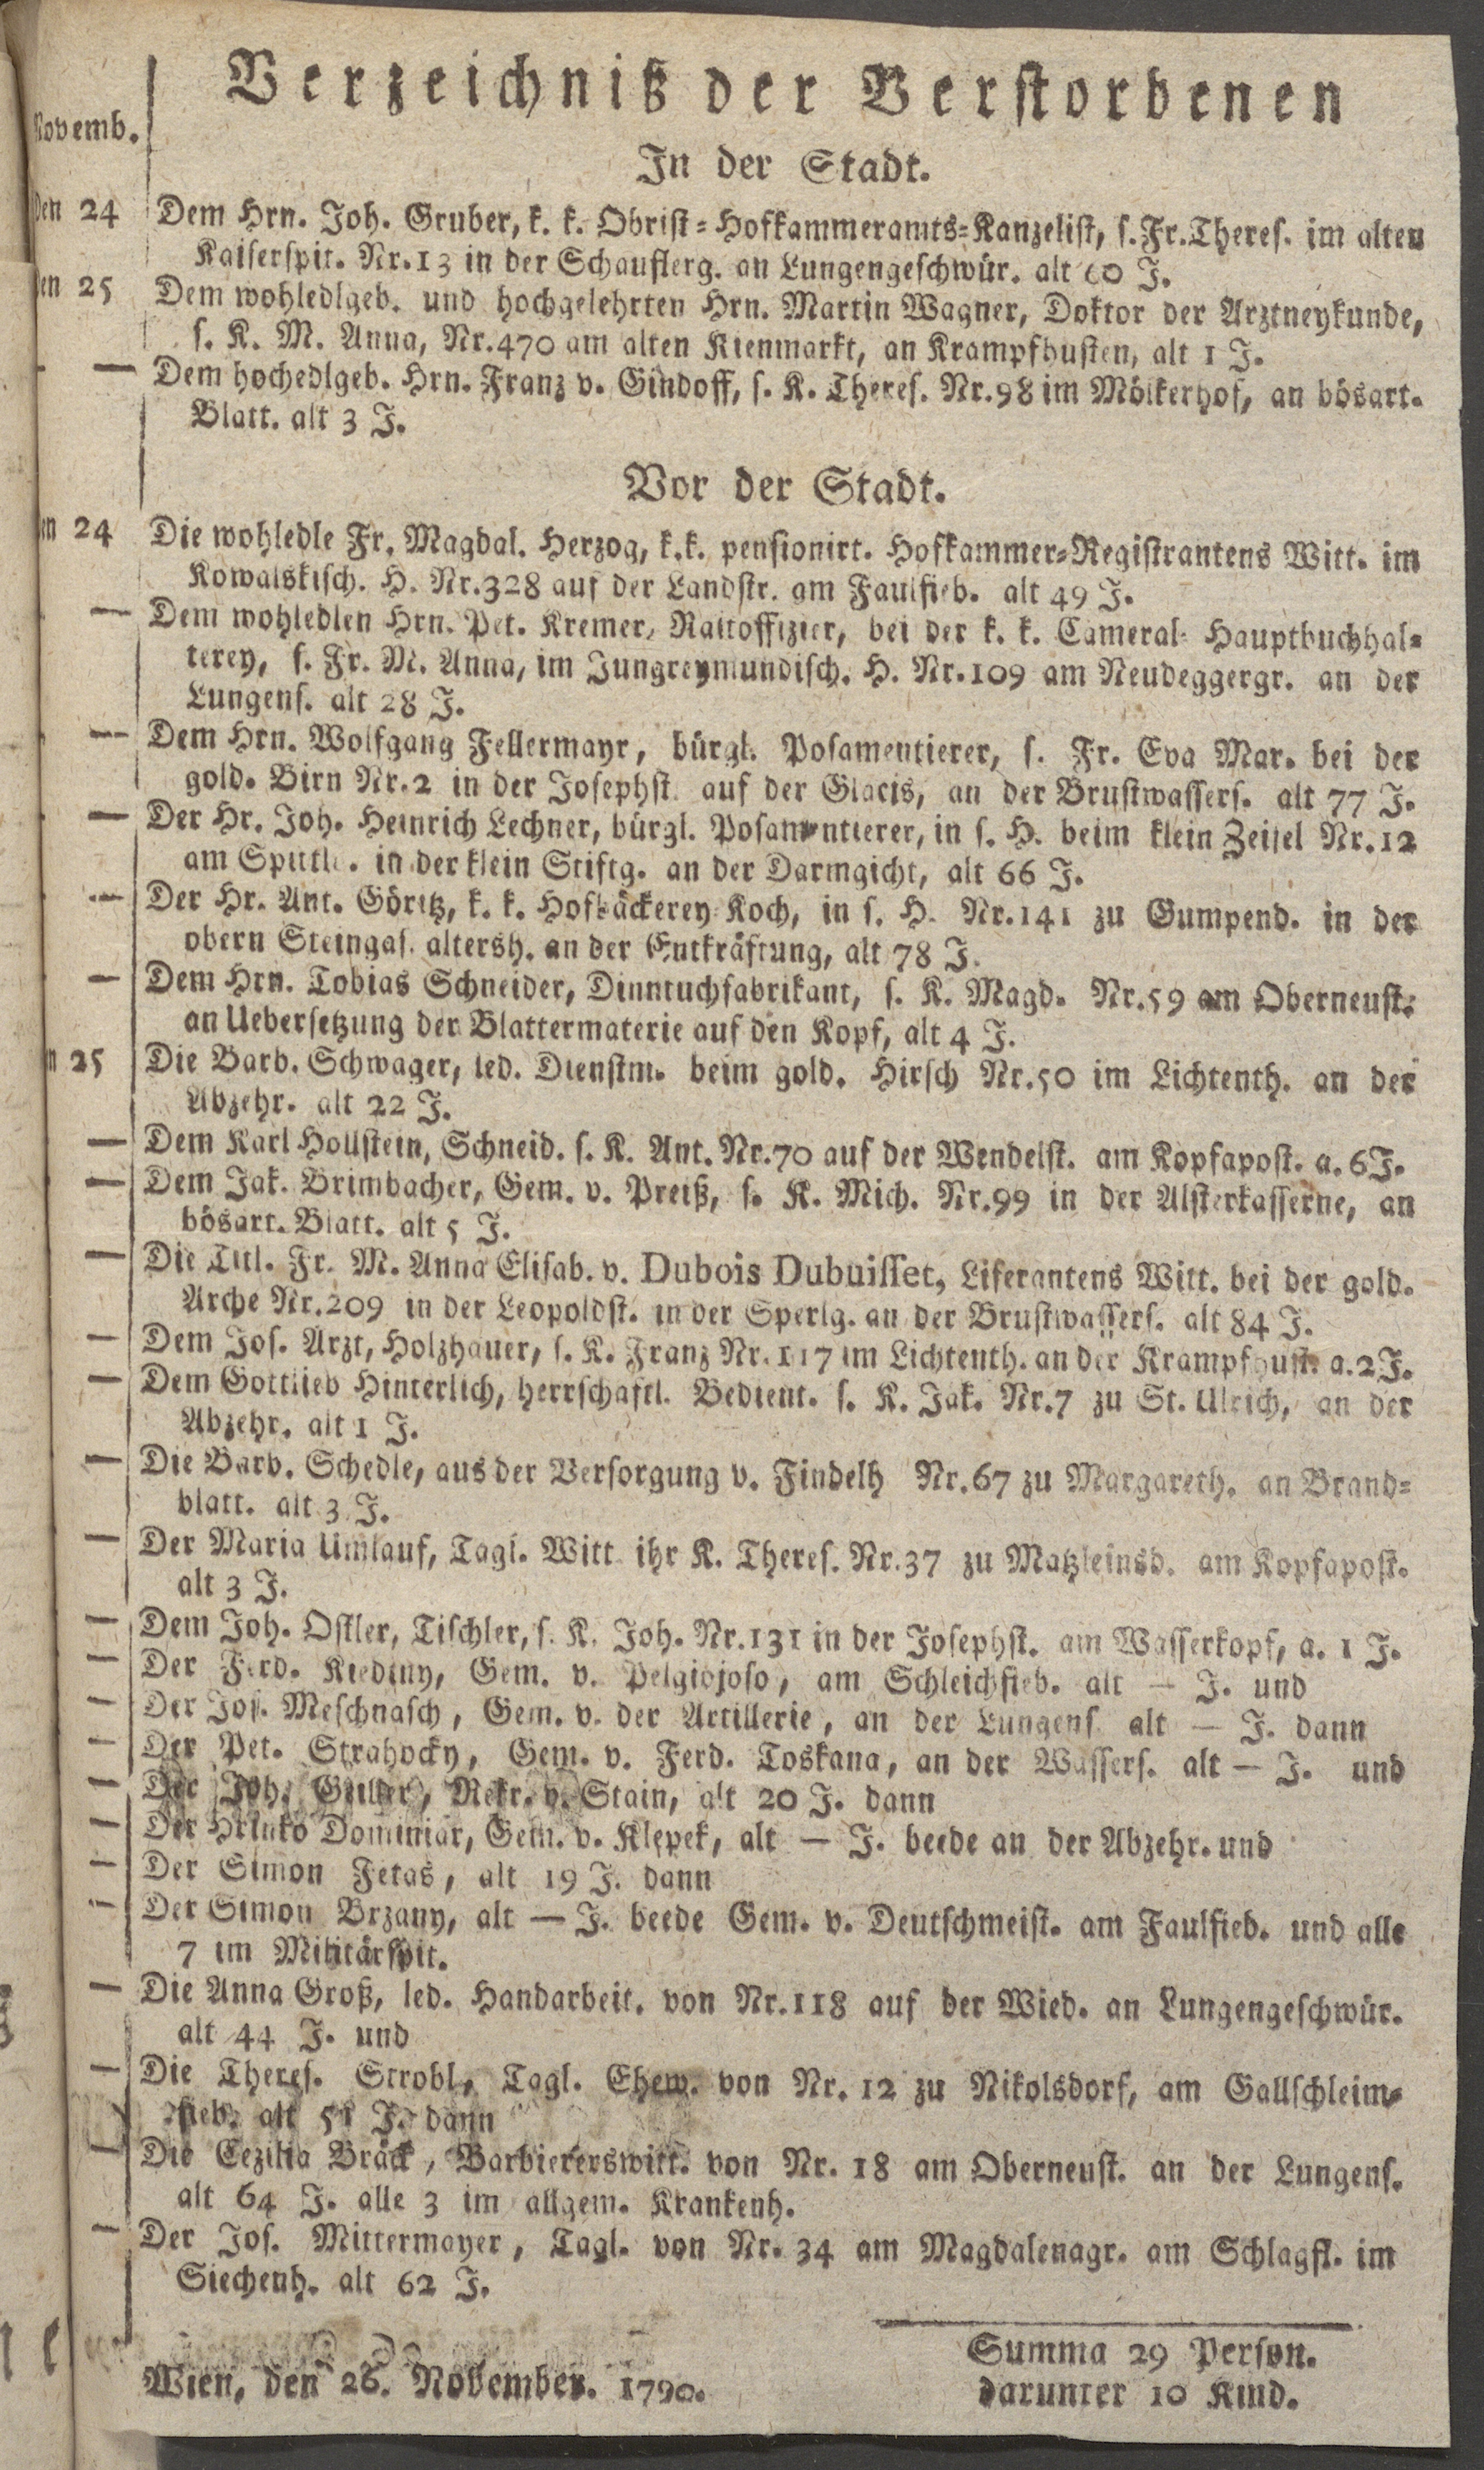 Verzeichniß der Verstorbenen
Novemb.
In der Stadt.
den 24 Dem Hrn. Joh. Gruber, k. k. Obrist-Hofkammeramts-Kanzelist, s. Fr. Theres. im alten
Kaiserspit. Nr. 13 in der Schauflerg. an Lungengeschwür. alt 60 J.
den 25 Dem wohledlgeb. und hochgelehrten Hrn. Martin Wagner, Doktor der Arztneykunde,
s. K. M. Anna, Nr. 470 am alten Kienmarkt, an Krampfhusten, alt 1 J.
— Dem hochedlgeb. Hrn. Franz v. Gindoff, s. K. Theres. Nr. 98 im Mölkerhof, an bösart.
Blatt. alt 3 J.
Vor der Stadt.
en 24 Die wohledle Fr. Magdal. Herzog, k. k. pensionirt. Hofkammer-Registrantens Witt. im
Kowalskisch. H. Nr. 328 auf der Landstr. am Faulfieb. alt 49 J.
— Dem wohledlen Hrn. Pet. Kremer, Raitoffizier, bei der k. k. Cameral-Hauptbuchhal-
terey, s. Fr. M. Anna, im Jungreymundisch. H. Nr. 109 am Neudeggergr. an der
Lungens. alt 28 J.
— Dem Hrn. Wolfgang Fellermayr, bürgl. Posamentierer, s. Fr. Eva Mar. bei der
gold. Birn Nr. 2 in der Josephst. auf der Glacis, an der Brustwassers. alt 77 J.
— Der Hr. Joh. Heinrich Lechner, bürgl. Posamentierer, in s. H. beim klein Zeisel Nr. 12
am Spittlb. in der klein Stiftg. an der Darmgicht, alt 66 J.
— Der Hr. Ant. Göritz, k. k. Hofbäckerey Koch, in s. H. Nr. 141 zu Gumpend. in der
obern Steingas. altersh. an der Entkräftung, alt 78 J.
— Dem Hrn. Tobias Schneider, Dinntuchfabrikant, s. K. Magd. Nr. 59 am Oberneust.
an Uebersetzung der Blattermaterie auf den Kopf, alt 4 J.
n 25 Die Barb. Schwager, led. Dienstm. beim gold. Hirsch Nr. 50 im Lichtenth. an der
Abzehr. alt 22 J.
— Dem Karl Hollstein, Schneid. s. K. Ant. Nr. 70 auf der Wendelst. am Kopfapost. a. 6 J.
— Dem Jak. Brimbacher, Gem. v. Preiß, s. K. Mich. Nr. 99 in der Alsterkasserne, an
bösart. Blatt. alt 5 J.
— Die Titl. Fr. M. Anna Elisab. v. Dubois Dubuisset, Liferantens Witt. bei der gold.
Arche Nr. 209 in der Leopoldst. in der Sperlg. an der Brustwassers. alt 84 J.
— Dem Jos. Arzt, Holzhauer, s. K. Franz Nr. 117 im Lichtenth. an der Krampfhust. a. 2 J.
— Dem Gottlieb Hinterlich, herrschaftl. Bedient. s. K. Jak. Nr. 7 zu St. Ulrich, an der
Abzehr. alt 1 J.
— Die Barb. Schedle, aus der Versorgung v. Findelh Nr. 67 zu Margareth. an Brand-
blatt. alt 3 J.
— Der Maria Umlauf, Tagl. Witt ihr K. Theres. Nr. 37 zu Matzleinsd. am Kopfapost.
alt 3 J.
— Dem Joh. Ostler, Tischler, s. K. Joh. Nr. 131 in der Josephst. am Wasserkopf, a. 1 J.
— Der Ferd. Kiediny, Gem. v. Pelgiojoso, am Schleichfieb. alt — J. und
— Der Jos. Meschnasch, Gem. v. der Artillerie, an der Lungens. alt — J. dann
— Der Pet. Strahocky, Gem. v. Ferd. Toskana, an der Wassers. alt — J. und
— Der Joh. Rekr. v. Stain, alt 20 J. dann
— Der Hrinko Dominiar, Gem. v. Klepek, alt — J. beede an der Abzehr. und
— Der Simon Fekas, alt 19 J. dann
— Der Simon Brzany, alt — J. beede Gem. v. Deutschmeist. am Faulfieb. und alle
7 im Militärspit.
— Die Anna Groß, led. Handarbeit. von Nr. 118 auf der Wied. an Lungengeschwür.
alt 44 J. und
— Die Theres. Strobl, Tagl. Ehew. von Nr. 12 zu Nikolsdorf, am Gallschleim-
fieb. alt 51 J. dann
— Die Cezilia Bräck, Barbiererswitt. von Nr. 18 am Oberneust. an der Lungens.
alt 64 J. alle 3 im allgem. Krankenh.
— Der Jos. Mittermayer, Tagl. von Nr. 34 am Magdalenagr. am Schlagfl. im
Siechenh. alt 62 J.
Summa 29 Person.
Wien, den 26. November. 1790.
darunter 10 Kind.